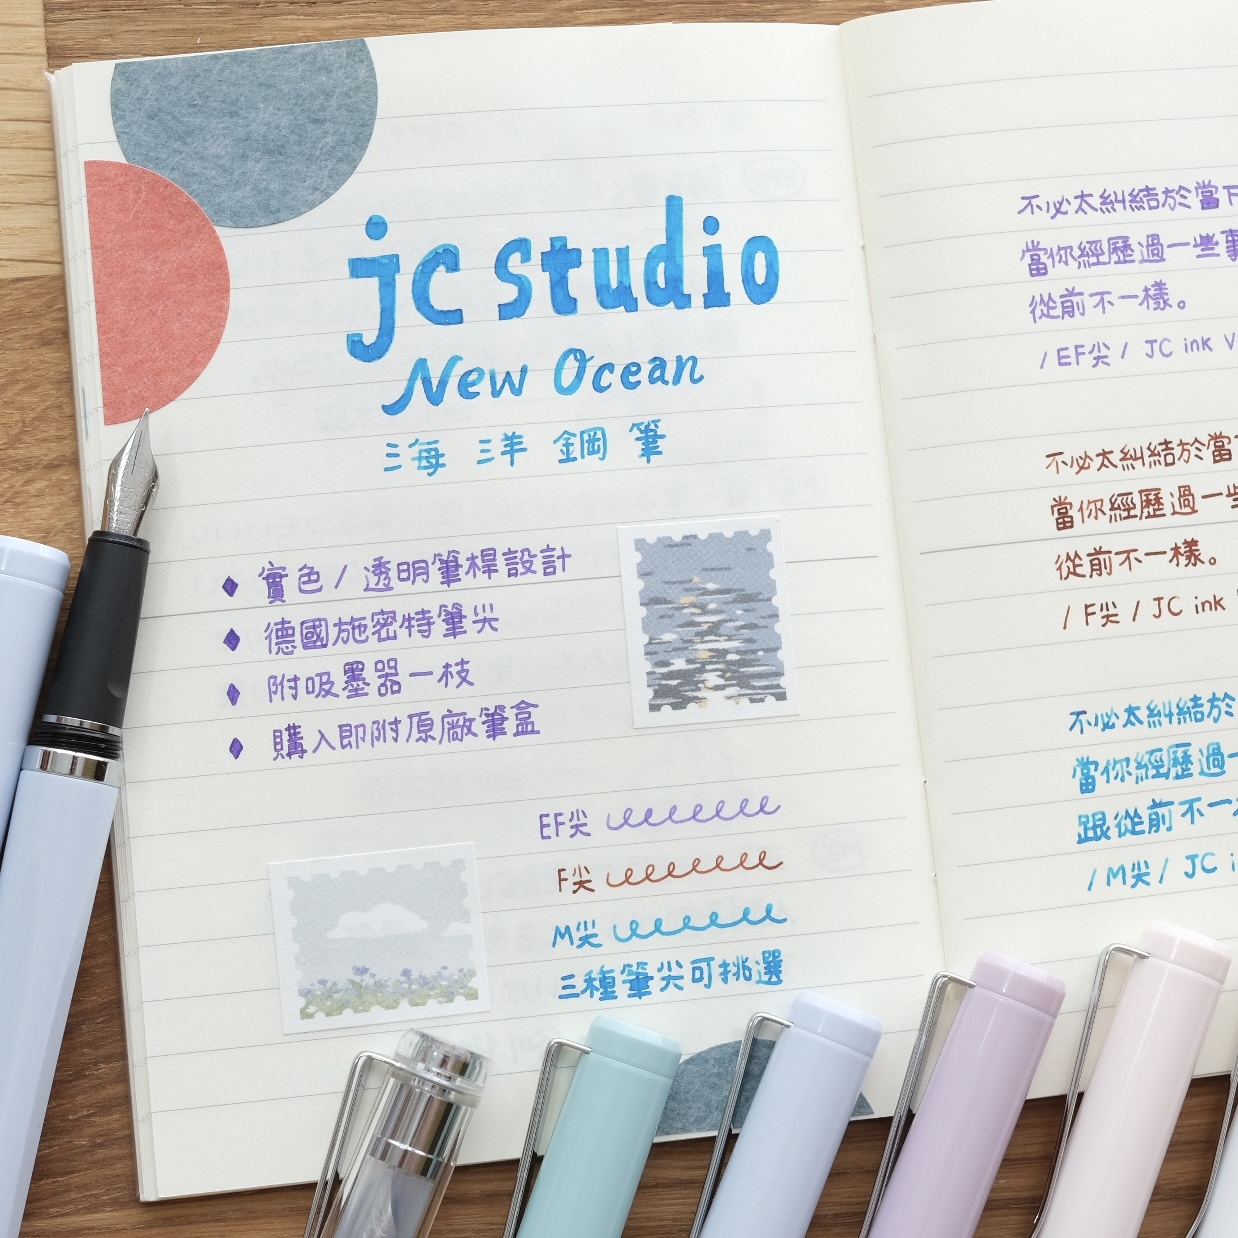 jc studio
New Ocean
海洋鋼筆
實色 / 透明筆桿設計
德國施密特筆尖
附吸墨器一枝
購入即附原廠筆盒
EF尖
F尖
M尖
三種筆尖可挑選
不必太糾結於當下
當你經歷過一些事
從前不一樣。
/ EF尖 / JC ink V
不必太糾結於當
當你經歷過一些
從前不一樣。
/ F尖 / JC ink
不必太糾結於
當你經歷過一
跟從前不一
/ M尖 / JC i